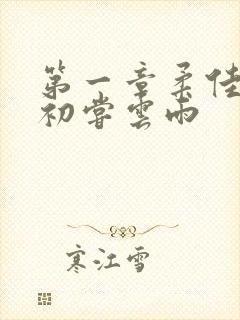 第一章柔佳
初尝雲雨
寒江雪